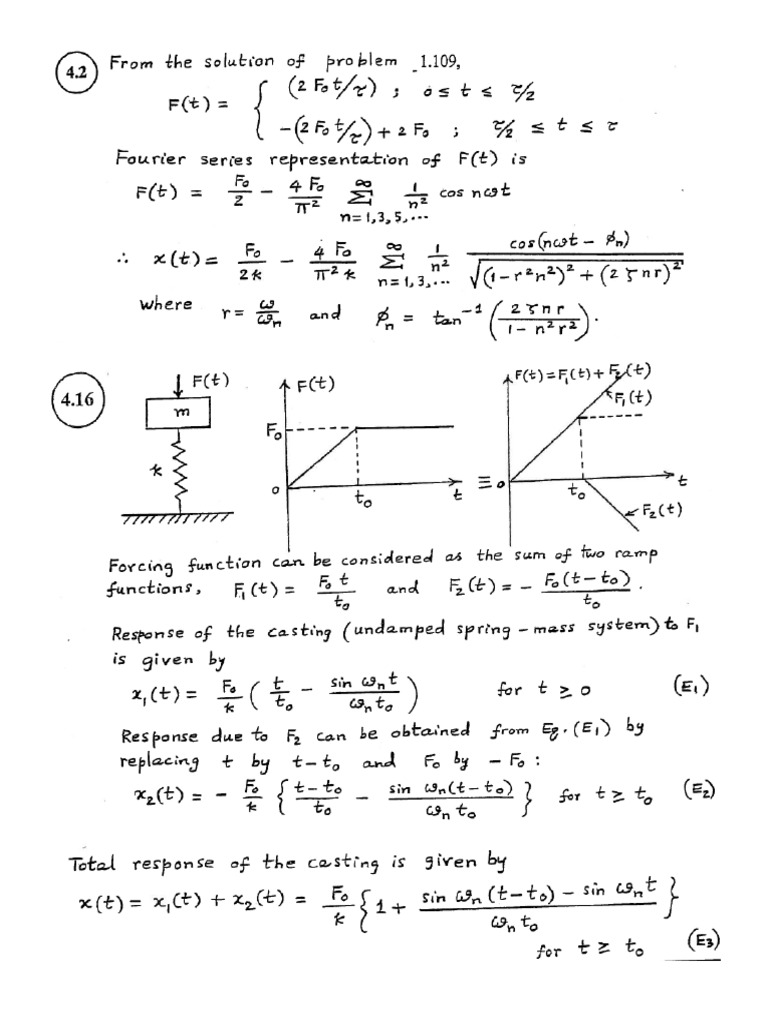 4.2 From the solution of problem 1.109,
F(t) = { (2 F₀t/τ) ; 0 ≤ t ≤ τ/2
-(2 F₀t/τ) + 2 F₀ ; τ/2 ≤ t ≤ τ
Fourier series representation of F(t) is
F(t) = F₀/2 - 4 F₀/π² ∑ n=1,3,5,... ∞ 1/n² cos nωt
∴ x(t) = F₀/2k - 4 F₀/π² k ∑ n=1,3,... ∞ 1/n² cos(nωt - φₙ)/√((1-r²n²)² + (2 ζ n r)²)
where r = ω/ωₙ and φₙ = tan⁻¹ (2 ζ n r/1 - n² r²).
4.16
F(t)
m
k
F(t)
F₀
0
t₀
t
≡
F(t) = F₁(t) + F₂(t)
F₁(t)
0
t₀
t
F₂(t)
Forcing function can be considered as the sum of two ramp
functions, F₁(t) = F₀ t/t₀ and F₂(t) = - F₀(t-t₀)/t₀ .
Response of the casting (undamped spring-mass system) to F₁
is given by
x₁(t) = F₀/k ( t/t₀ - sin ωₙt/ωₙt₀ ) for t ≥ 0 (E₁)
Response due to F₂ can be obtained from Eq. (E₁) by
replacing t by t-t₀ and F₀ by - F₀ :
x₂(t) = - F₀/k { t-t₀/t₀ - sin ωₙ(t-t₀)/ωₙ t₀ } for t ≥ t₀ (E₂)
Total response of the casting is given by
x(t) = x₁(t) + x₂(t) = F₀/k { 1 + sin ωₙ (t-t₀) - sin ωₙt/ωₙ t₀ }
for t ≥ t₀ (E₃)